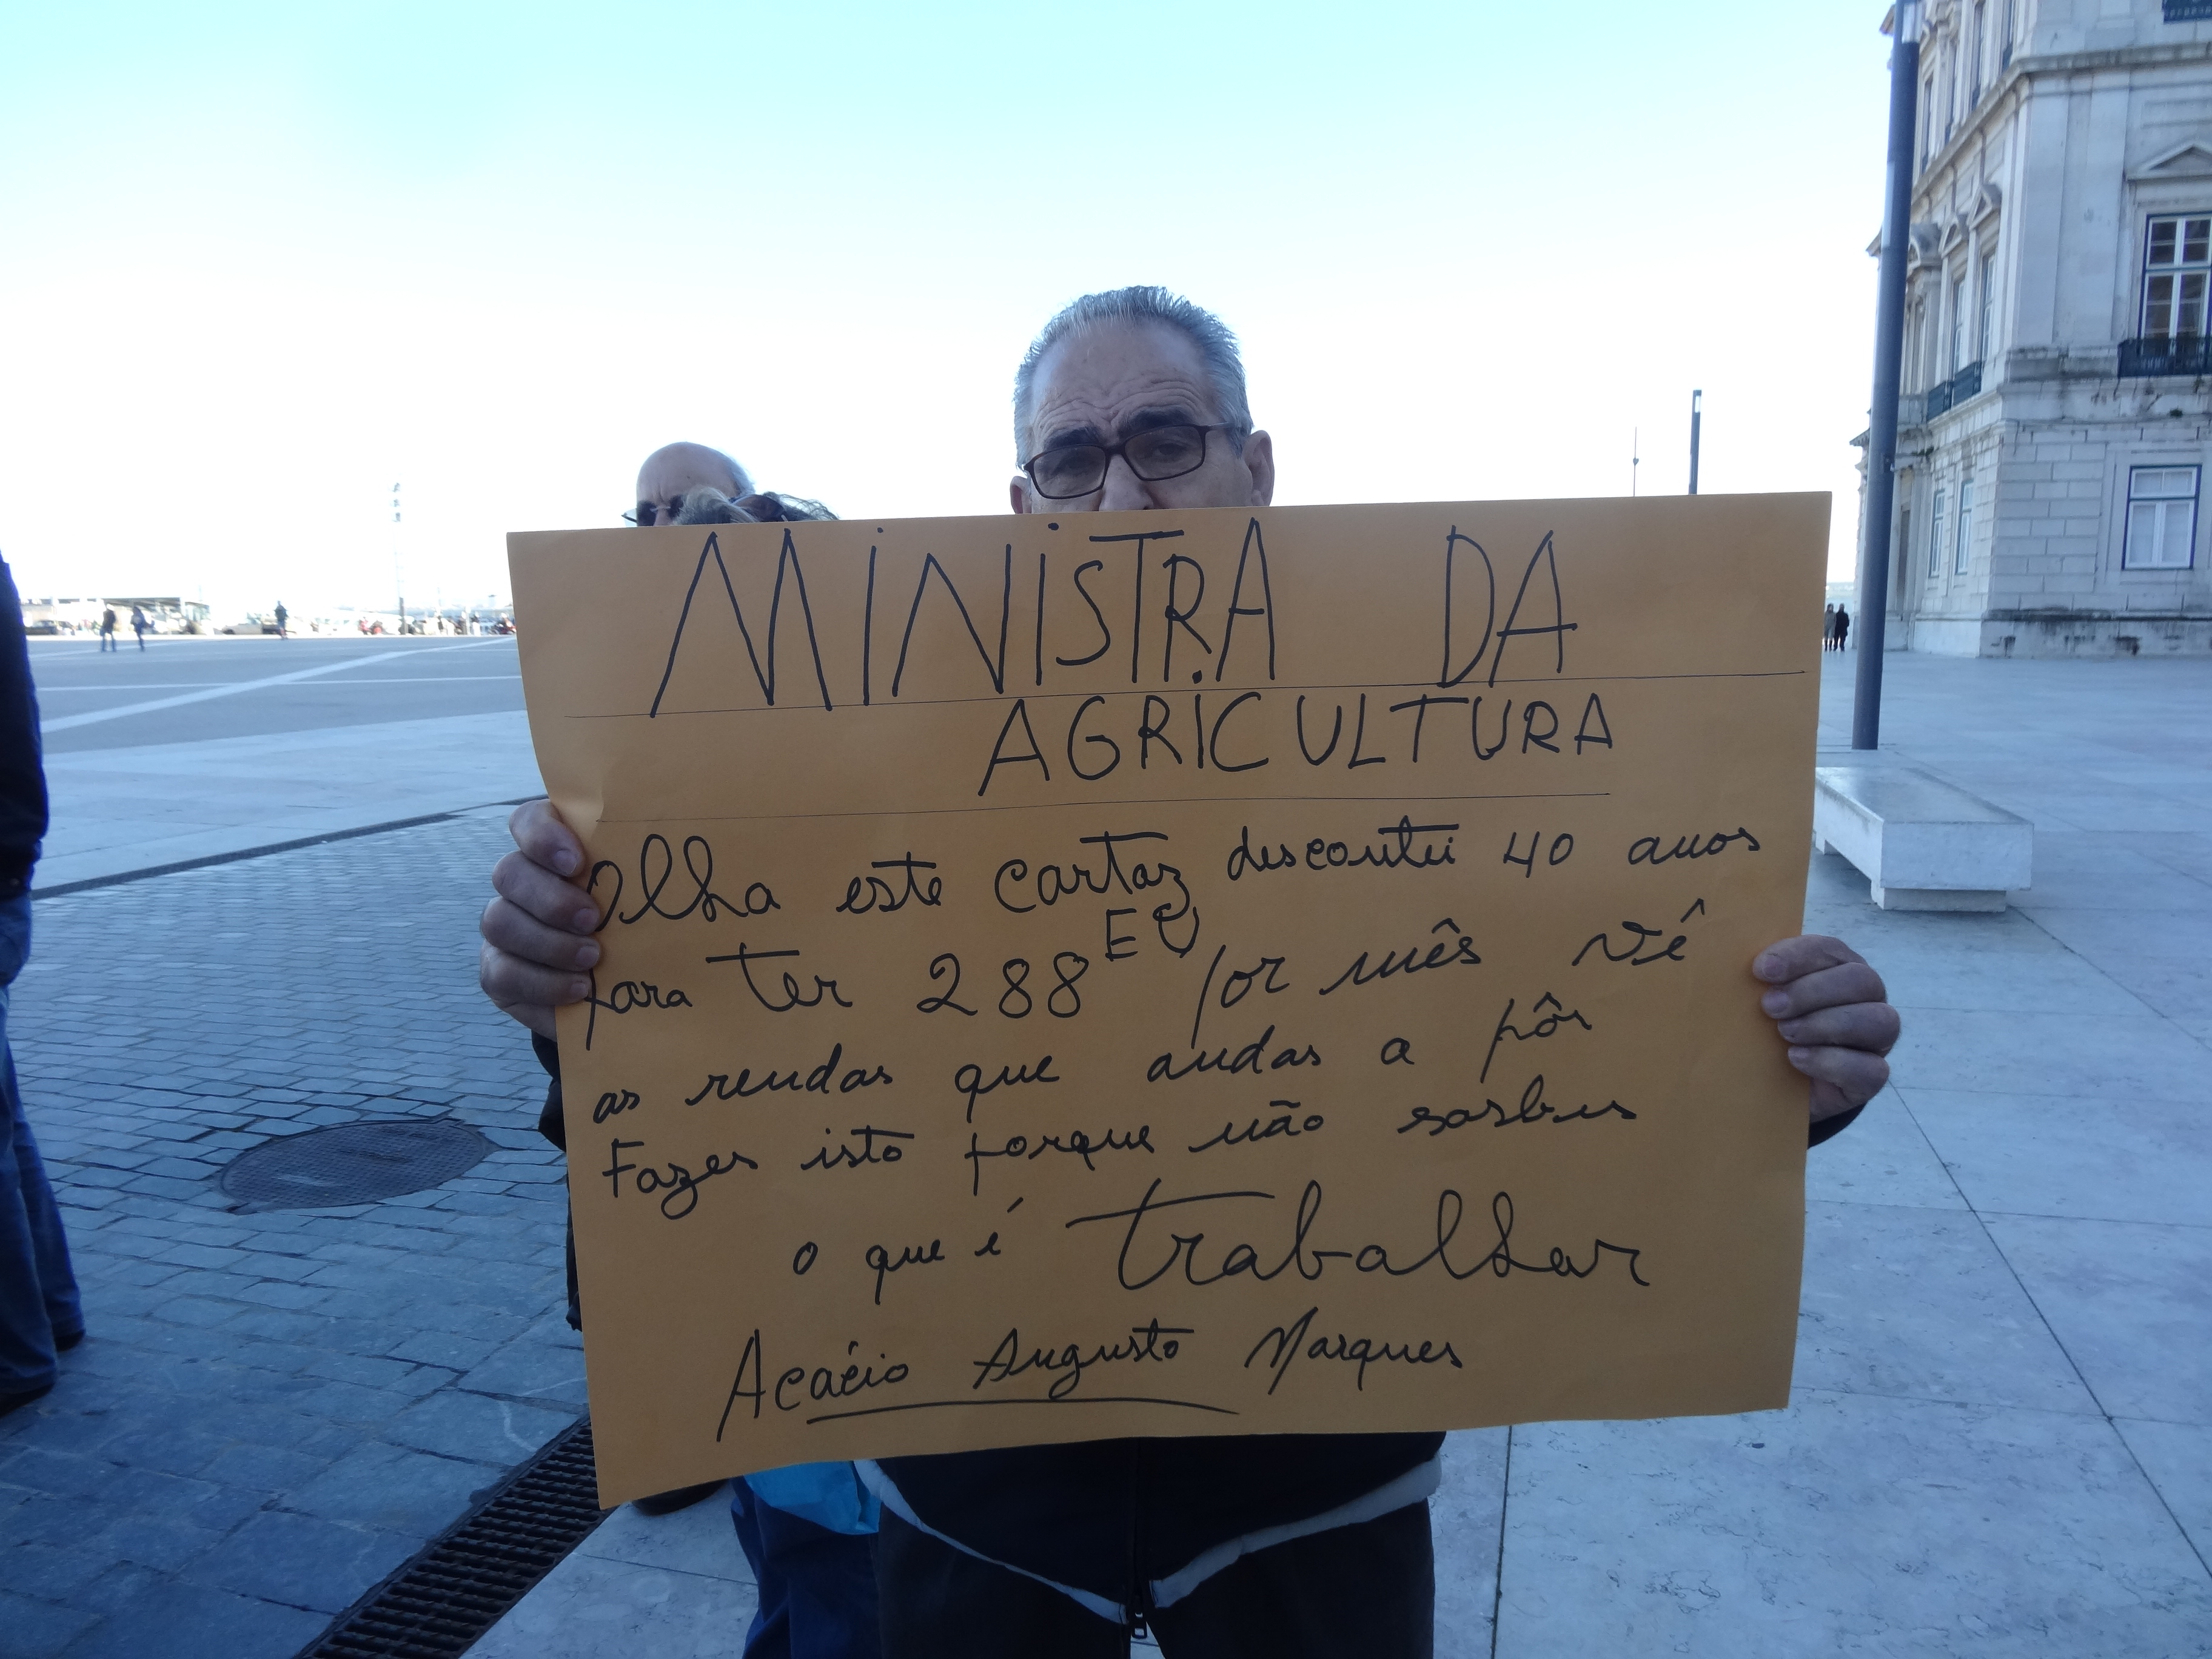 MINISTRA DA
AGRICULTURA
Olha este cartaz descontei 40 anos
para ter 288 EU por mês Vê
as rendas que andas a pôr
Fazes isto porque não sasbes
o que é trabalhar
Acácio Augusto Marques